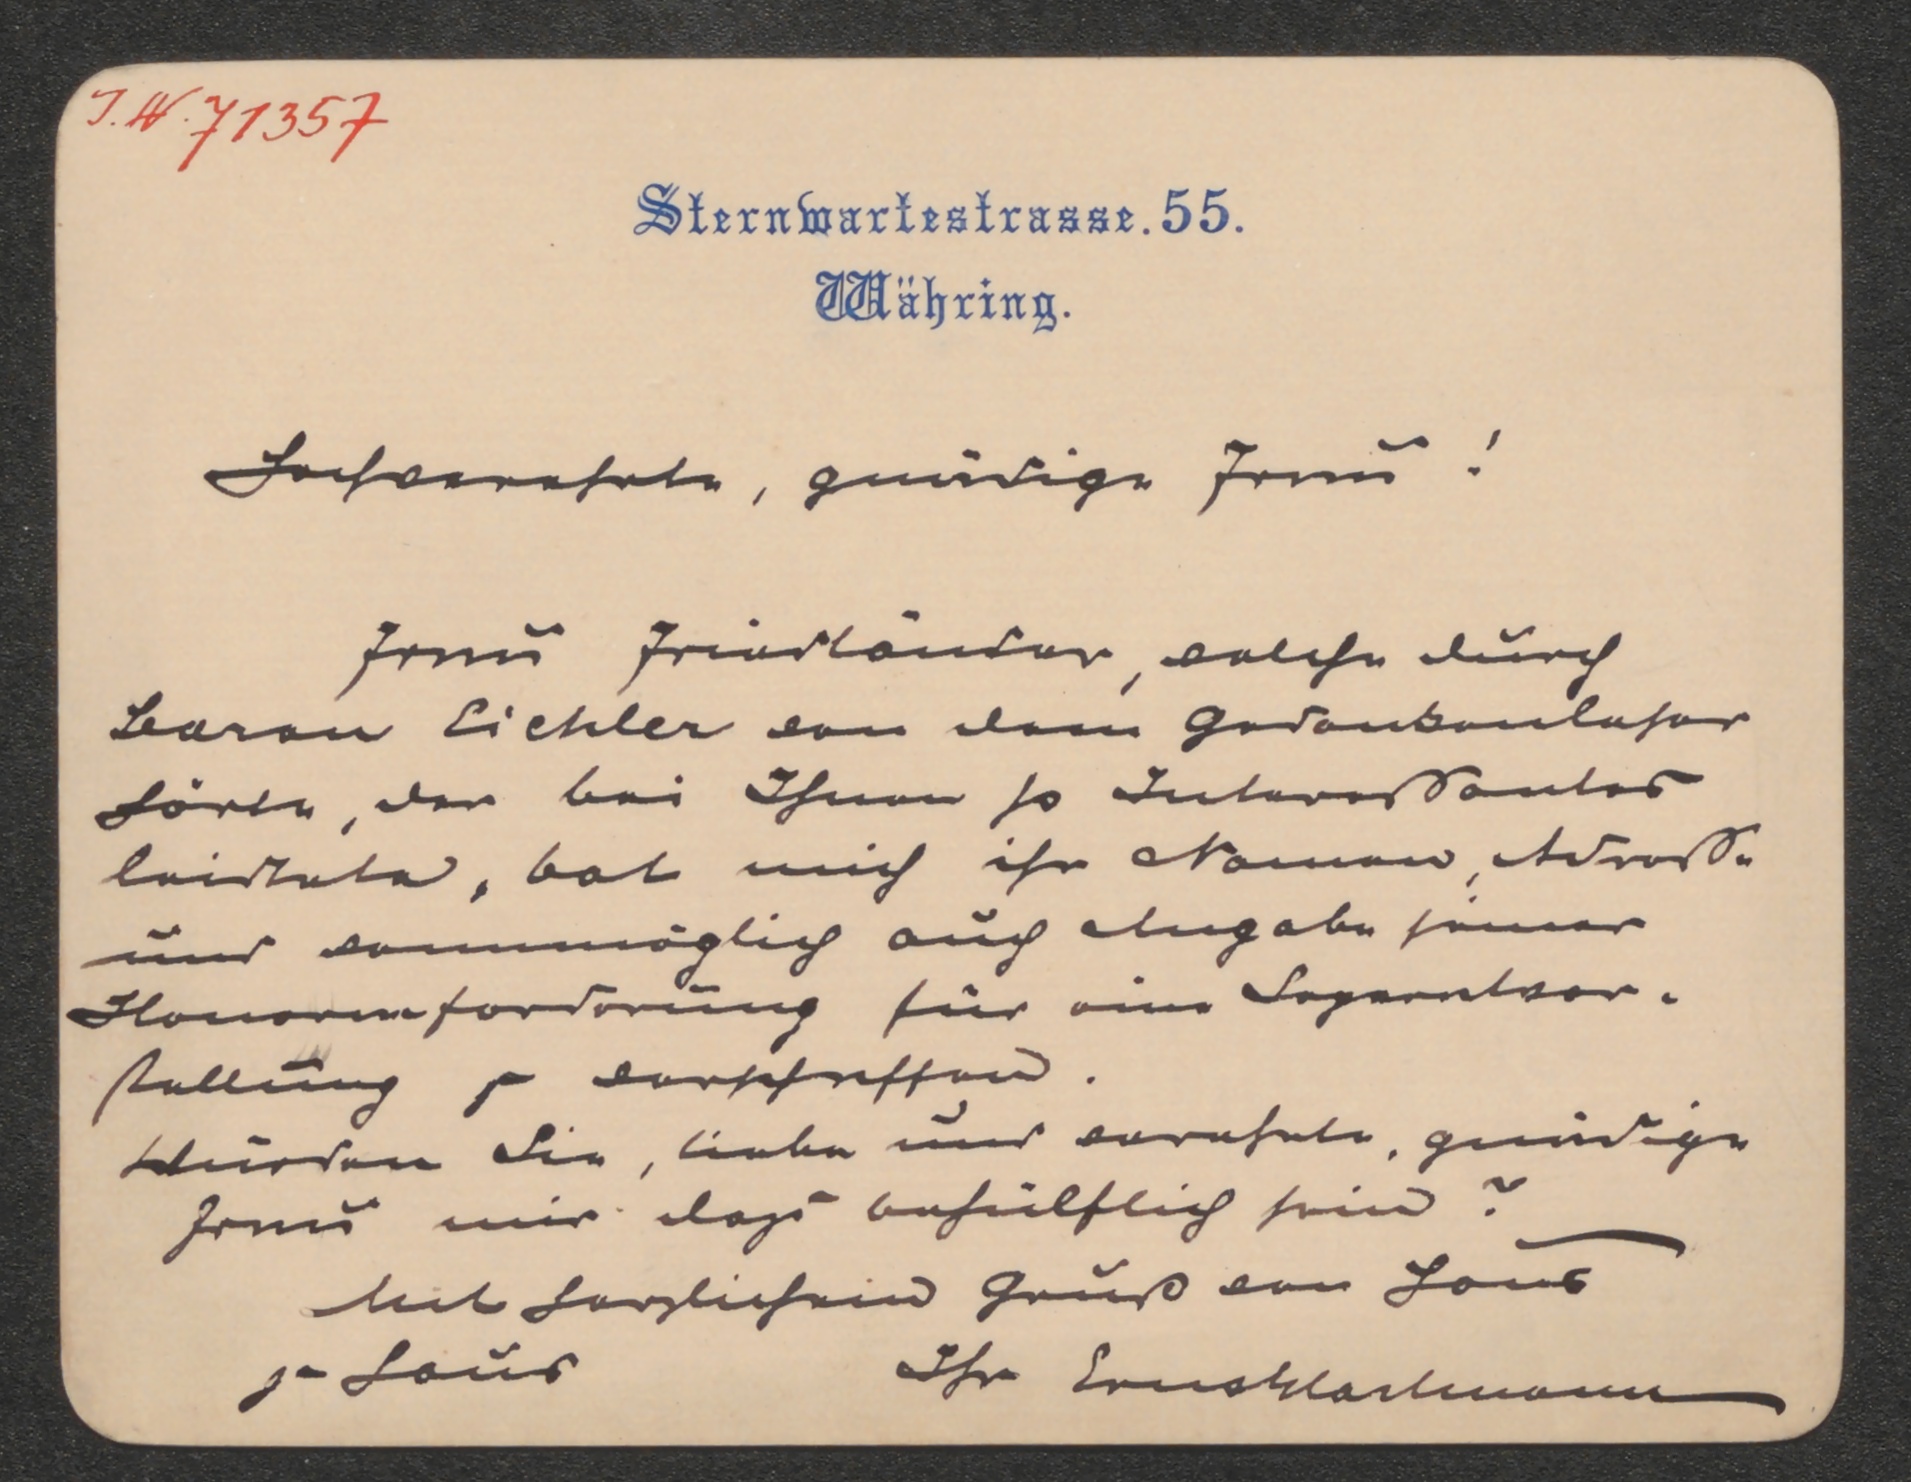 I.N. 71357
Sternwartestrasse. 55.
Währing.
Hochverehrte, gnädige Frau!
Frau Friedländer, welche durch
Baron Eichler von dem Gedankenleser
hörte, der bei Ihnen so Interessantes
leistete, bat mich ihr Namen, Adresse
und womöglich auch Angabe seiner
Honorarforderung für eine Separatvor-
stellung zu verschaffen.
Würden Sie, liebe und verehrte, gnädige
Frau mir dazu behülflich sein?
Mit herzlichem Gruß von Haus
zu Haus Ihr Ernst Hartmann